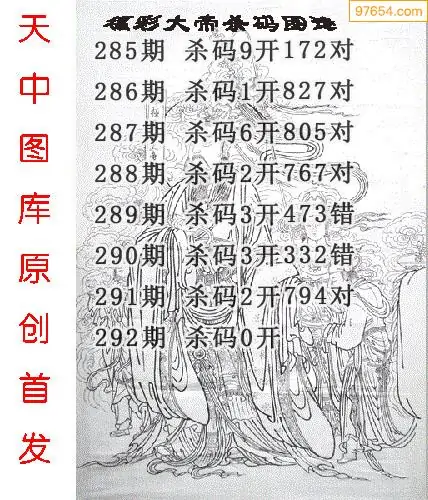 97654.com
福彩大帝杀码图迷
天中图库原创首发
285期 杀码9开172对
286期 杀码1开827对
287期 杀码6开805对
288期 杀码2开767对
289期 杀码3开473错
290期 杀码3开332错
291期 杀码2开794对
292期 杀码0开